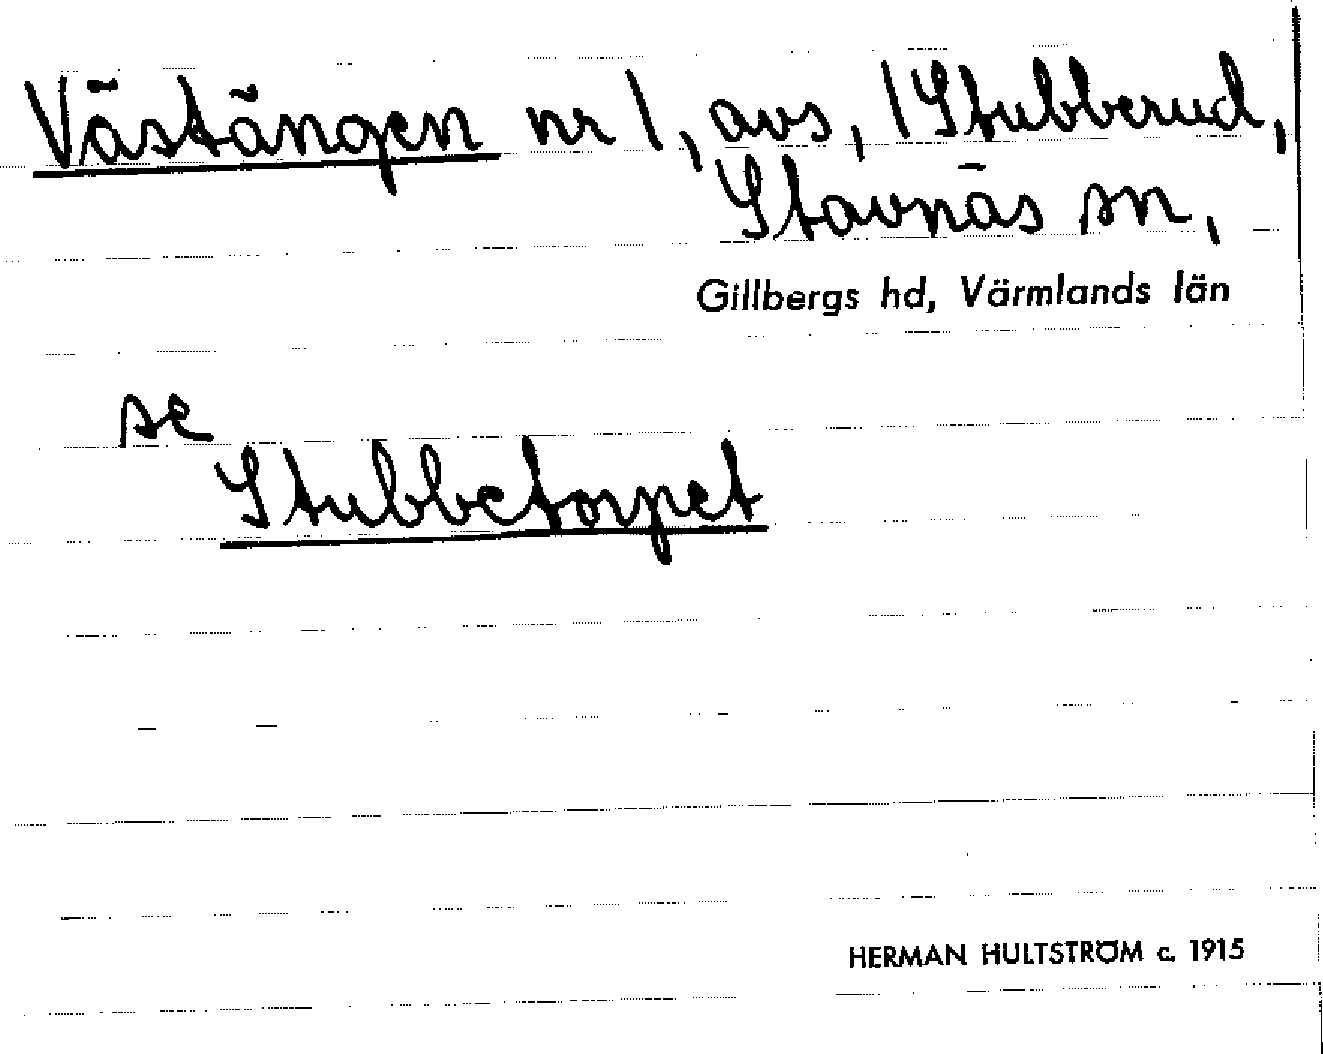 Västängen nr 1, avs, 1 Stubberud,
Stavnäs sn,
Gillbergs hd, Värmlands län
se
Stubbetorpet
HERMAN HULTSTRÖM c. 1915